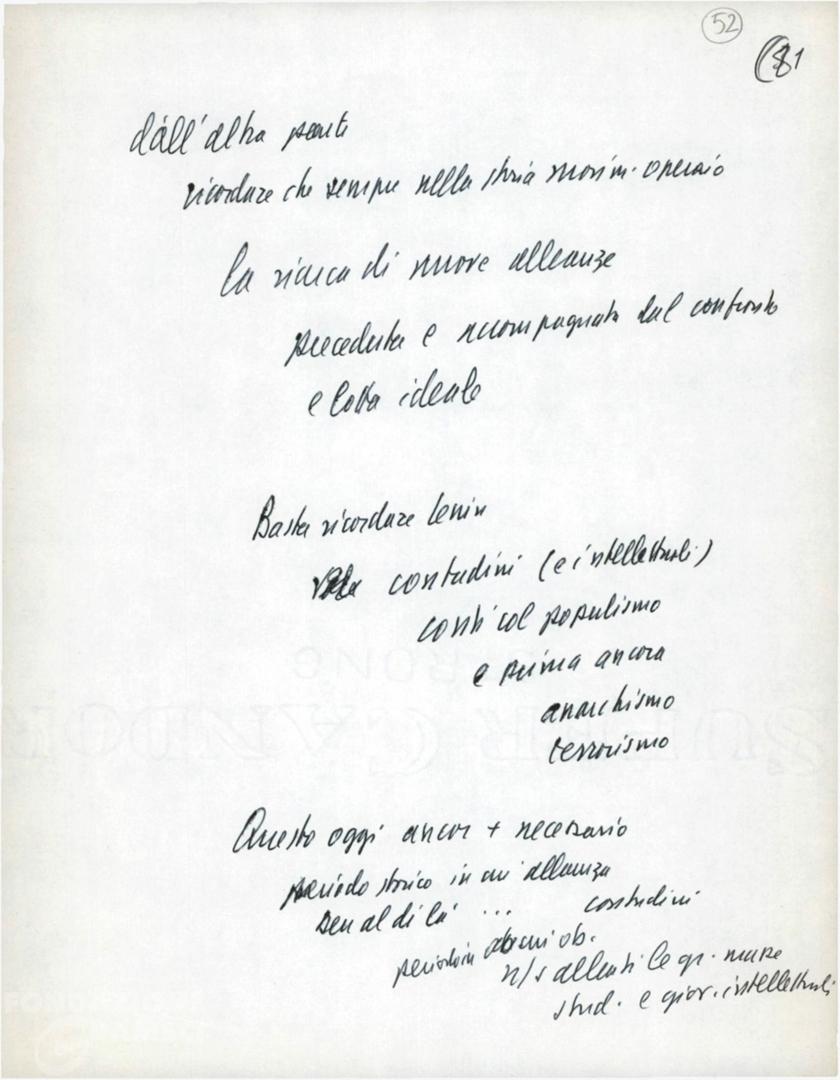 52
(81
dall'altra parte
ricordare che sempre nella storia movim. operaio
la ricerca di nuove alleanze
preceduta e accompagnata dal confronto
e lotta ideale
Basta ricordare Lenin
contadini (e intellettuali)
conti col populismo
e prima ancora
anarchismo
terrorismo
Questo oggi ancor + necessario
periodo storico in cui alleanza
ben al di là ... contadini
periodo in cui ob.
n/s alleati le gr. masse
stud. e giov. intellettuali